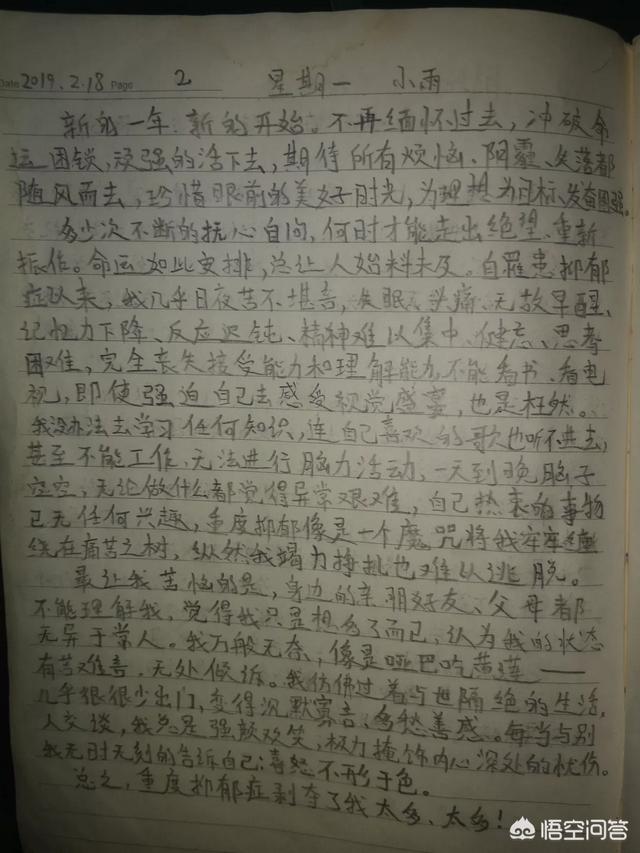 Date 2019.2.18 Page 2 星期一 小雨
新的一年.新的开始。不再缅怀过去，冲破命
运困锁，顽强的活下去，期待所有烦恼、阴霾、失落都
随风而去，珍惜眼前的美好时光，为理想为目标、发奋图强。
多少次不断的扪心自问，何时才能走出绝望、重新
振作。命运如此安排，总让人始料未及。自罹患抑郁
症以来，我几乎日夜苦不堪言，失眠、头痛、无故早醒、
记忆力下降、反应迟钝、精神难以集中、健忘、思考
困难，完全丧失接受能力和理解能力，不能看书、看电
视，即使强迫自己去感受视觉盛宴，也是枉然。
我没办法去学习任何知识，连自己喜欢的歌也听不进去，
甚至不能工作、无法进行脑力活动，一天到晚脑子
空空，无论做什么都觉得异常艰难，自己热衷的事物
已无任何兴趣，重度抑郁像是一个魔咒将我牢牢缠
绕在痛苦之树，纵然我竭力挣扎也难以逃脱。
最让我苦恼的是，身边的亲朋好友、父母都
不能理解我，觉得我只是想多了而已，认为我的状态
无异于常人。我万般无奈，像是哑巴吃黄莲——
有苦难言，无处倾诉。我仿佛过着与世隔绝的生活，
几乎很很少出门，变得沉默寡言、多愁善感。每当与别
人交谈，我总是强颜欢笑，极力掩饰内心深处的忧伤。
我无时无刻的告诉自己：喜怒不形于色。
总之，重度抑郁症剥夺了我太多、太多！
悟空问答